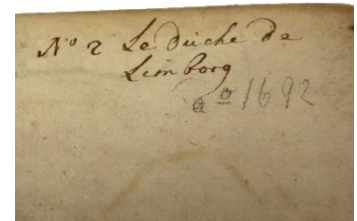 Nº 2 Le duché de
Limborg
aº 1692